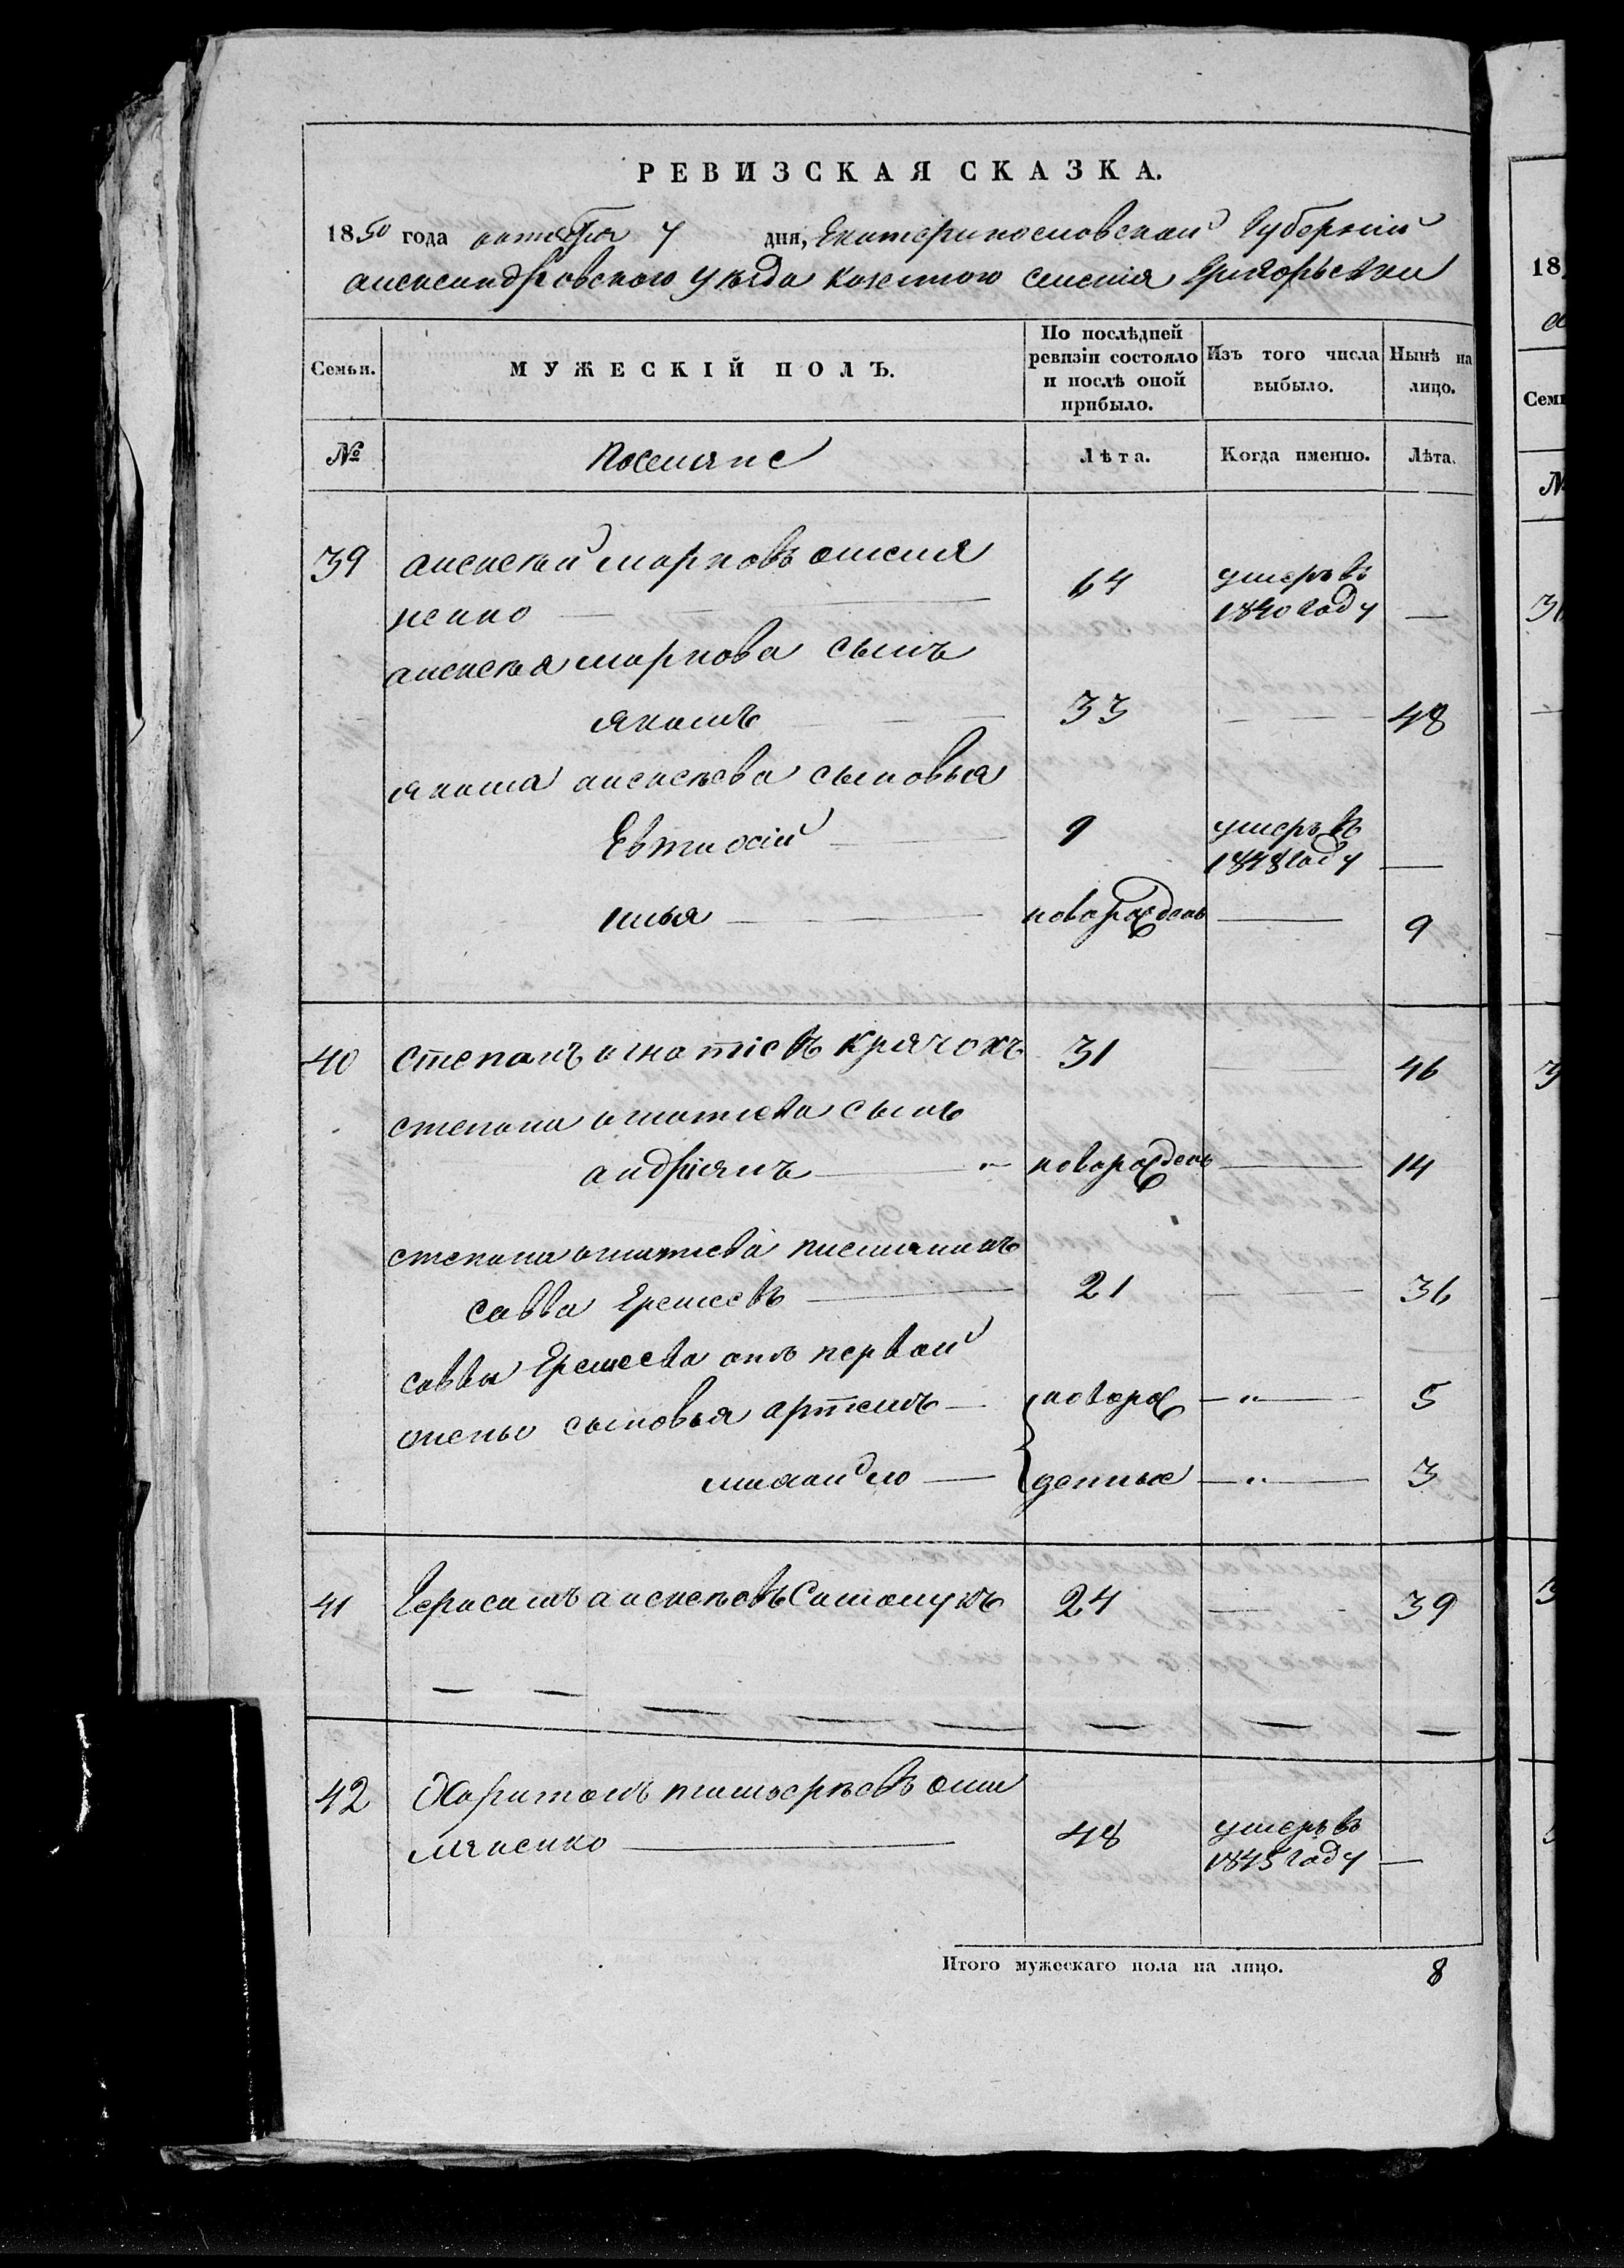 РЕВИЗСКАЯ СКАЗКА.
1850 года октября 7 дня, Екатеринославской Губерніи
александровского уѣзда казенного селенія Григорьевки
Семьи. МУЖЕСКІЙ ПОЛЪ. По послѣдней ревизіи состояло и послѣ оной прибыло. Изъ того числа выбыло. Нынѣ на лицо.
№ Поселяне Лѣта. Когда именно. Лѣта.
39 алексѣй марковъ омеля
ненко 64 умеръ въ 1840 году —
алексѣя маркова сынъ
якимъ 33 — 48
якима алексѣева сыновья
Евтихій 9 умеръ въ 1848 году —
илья новорожденъ — 9
40 степанъ игнатіевъ крячокъ 31 — 46
степана игнатіева сынъ
андріянъ новорожденъ — 14
степана игнатіева племянникъ
савва Еремеевъ 21 — 36
саввы Еремеева отъ первой
жены сыновья артемъ новорож — 5
михайло денные — 3
41 Герасимъ алексѣевъ 24 — 39
42 Харитонъ оме
ляненко 48 умеръ въ 1845 году —
Итого мужескаго пола на лицо. 8
18
Семь
№